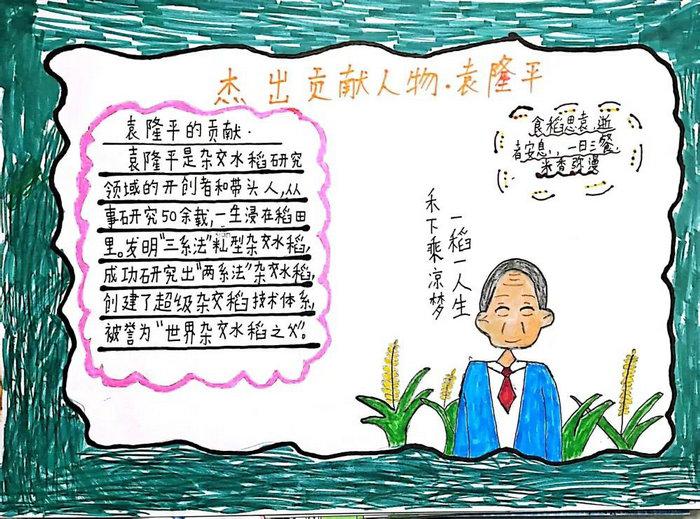 杰出贡献人物·袁隆平
袁隆平的贡献·
袁隆平是杂交水稻研究
领域的开创者和带头人,从
事研究50余载,一生浸在稻田
里。发明“三系法”籼型杂交水稻,
成功研究出“两系法”杂交水稻,
创建了超级杂交稻技术体系,
被誉为“世界杂交水稻之父”。
食稻思袁,逝
者安息,一日三餐
米香弥漫
一稻一人生
禾下乘凉梦